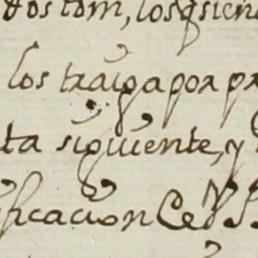 dos tom, los q sien
los traiga por pr
ta siguiente, y
ificacion Ce